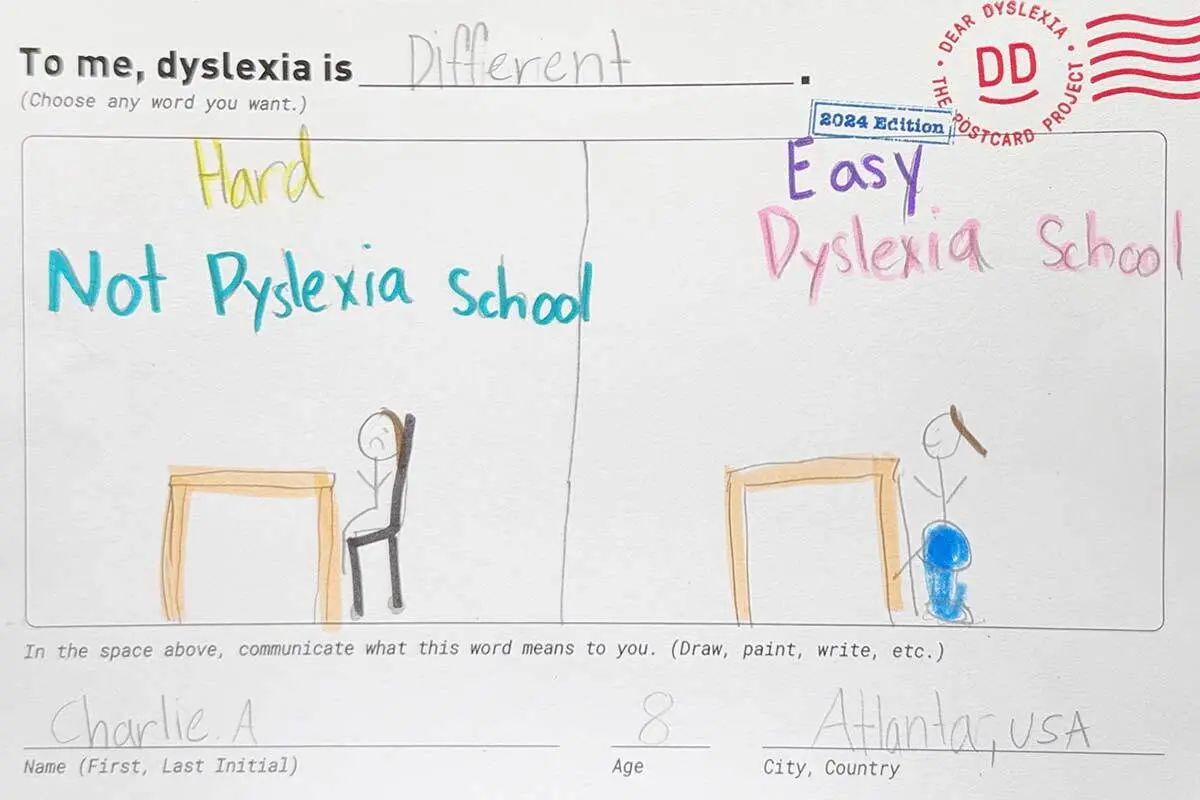 To me, dyslexia is Different.
(Choose any word you want.)
DEAR DYSLEXIA • THE POSTCARD PROJECT •
DD
2024 Edition
Hard
Not Dyslexia School
Easy
Dyslexia School
In the space above, communicate what this word means to you. (Draw, paint, write, etc.)
Charlie.A
Name (First, Last Initial)
8
Age
Atlanta, USA
City, Country